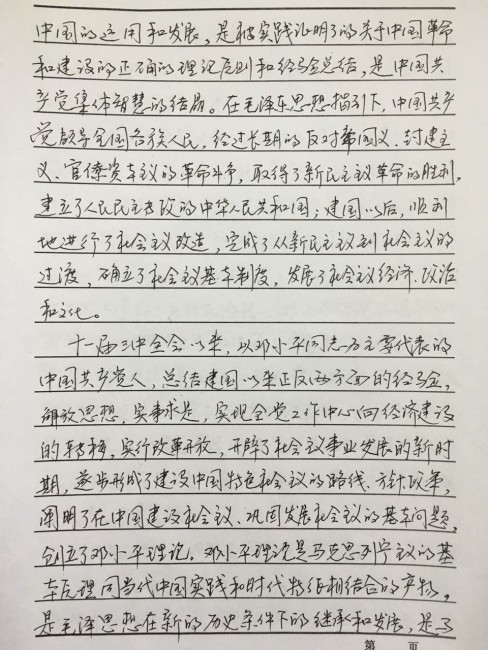 中国的运用和发展，是被实践证明了的关于中国革命
和建设的正确的理论原则和经验总结，是中国共
产党集体智慧的结晶。在毛泽东思想指引下，中国共产
党领导全国各族人民，经过长期的反对帝国主义、封建主
义、官僚资本主义的革命斗争，取得了新民主主义革命的胜利，
建立了人民民主专政的中华人民共和国；建国以后，顺利
地进行了社会主义改造，完成了从新民主主义到社会主义的
过渡，确立了社会主义基本制度，发展了社会主义经济、政治
和文化。
十一届三中全会以来，以邓小平同志为主要代表的
中国共产党人，总结建国以来正反两方面的经验，
解放思想，实事求是，实现全党工作中心向经济建设
的转移，实行改革开放，开辟了社会主义事业发展的新时
期，逐步形成了建设中国特色社会主义的路线、方针、政策，
阐明了在中国建设社会主义、巩固发展社会主义的基本问题，
创立了邓小平理论。邓小平理论是马克思列宁主义的基
本原理同当代中国实践和时代特征相结合的产物，
是毛泽思想在新的历史条件下的继承和发展，是马
第 页